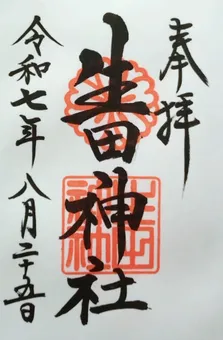 奉拝
生田神社
令和七年八月二十五日